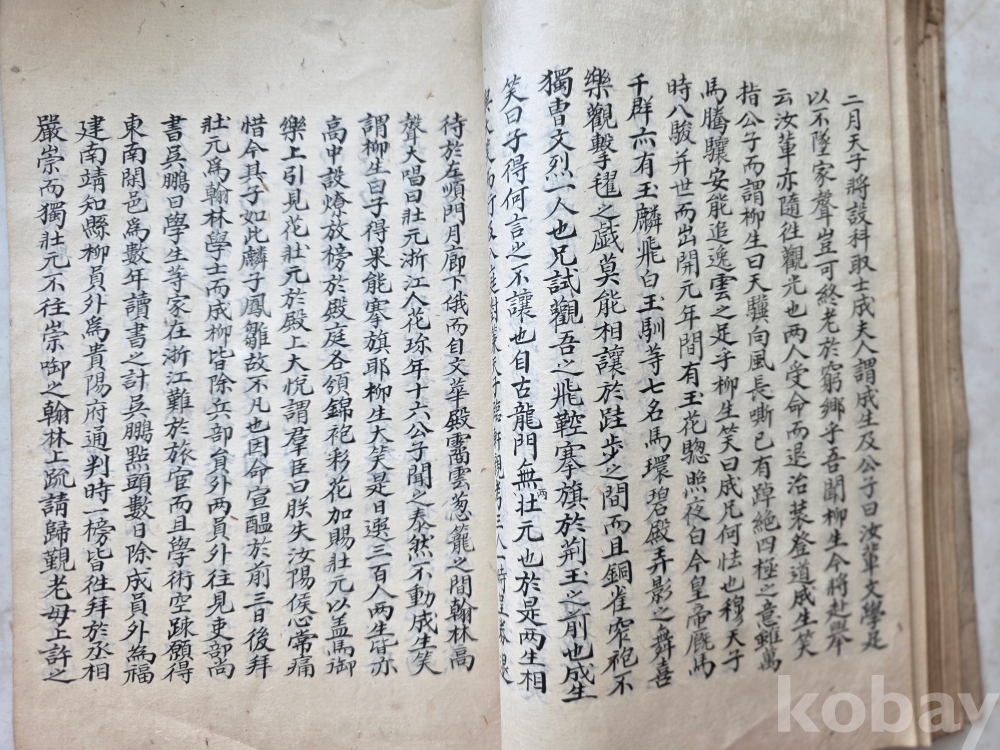 二月天子將設科取士成夫人謂成生及公子曰汝輩文學足
以不墜家聲豈可終老於窮鄉乎吾聞柳生今將赴擧
云汝輩亦隨往觀光也兩人受命而退治裝登道成生笑
指公子而謂柳生曰天驥向風長嘶已有踔絶四極之意雖萬
馬騰驤安能追逸雲之足乎柳生笑曰成兄何怯也穆天子
時八駿幷世而出開元年間有玉花驄照夜白今皇帝廐馬
千群亦有玉麟飛白玉馴等七名馬環碧殿弄影之舞喜
樂觀擊毬之戱莫能相讓於跬步之間而且銅雀窄袍不
獨曹文烈一人也兄試觀吾之飛鞚搴旗於荊玉之前也成生
笑曰子得何言之不讓也自古龍門無兩壯元也於是兩生相
待於左順門月廊下俄而自文華殿靄雲葱籠之間翰林高
聲大唱曰壯元浙江人花珎年十六公子聞之泰然不動成生笑
謂柳生曰子得果能搴旗耶柳生大笑是日選三百人兩生皆亦
高中設燎放榜於殿庭各領錦袍彩花加賜壯元以盖馬御
樂上引見花壯元於殿上大悅謂羣臣曰朕失汝陽侯心常痛
惜今其子如此麟子鳳雛故不凡也因命宣醞於前三日後拜
壯元爲翰林學士而成柳皆除兵部員外兩員外往見吏部尙
書吳鵬曰學生等家在浙江難於旅宦而且學術空踈願得
東南閑邑爲數年讀書之計吳鵬點頭數日除成員外為福
建南靖知縣柳員外爲貴陽府通判時一榜皆往拜於丞相
嚴崇而獨壯元不往崇啣之翰林上疏請歸覲老母上許之